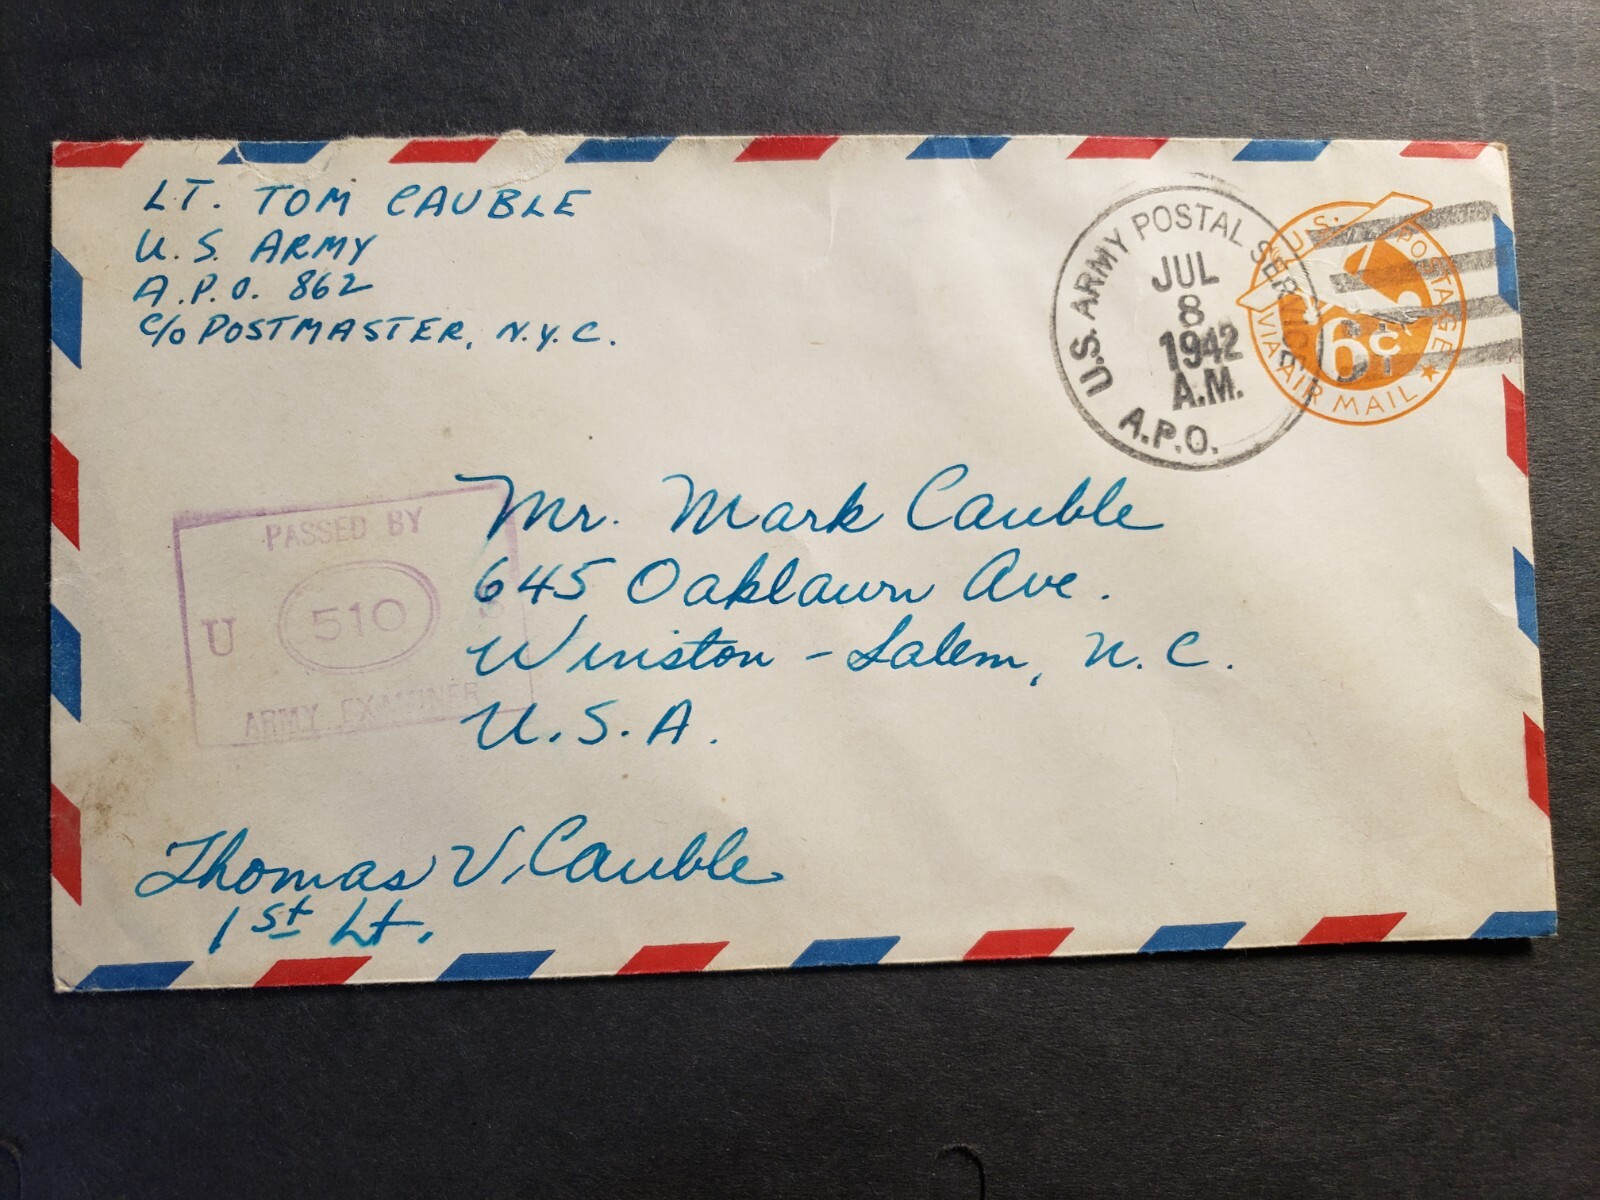 LT. TOM CAUBLE
U. S. ARMY
A.P.O. 862
c/o POSTMASTER, N.Y.C.
U.S. ARMY POSTAL SERVICE
JUL
8
1942
A.M.
A.P.O.
U.S. POSTAGE
6c
VIA AIR MAIL
PASSED BY
U 510 S
ARMY EXAMINER
Mr. Mark Cauble
645 Oaklawn Ave.
Winston-Salem, N. C.
U.S.A.
Thomas V. Cauble
1st Lt.